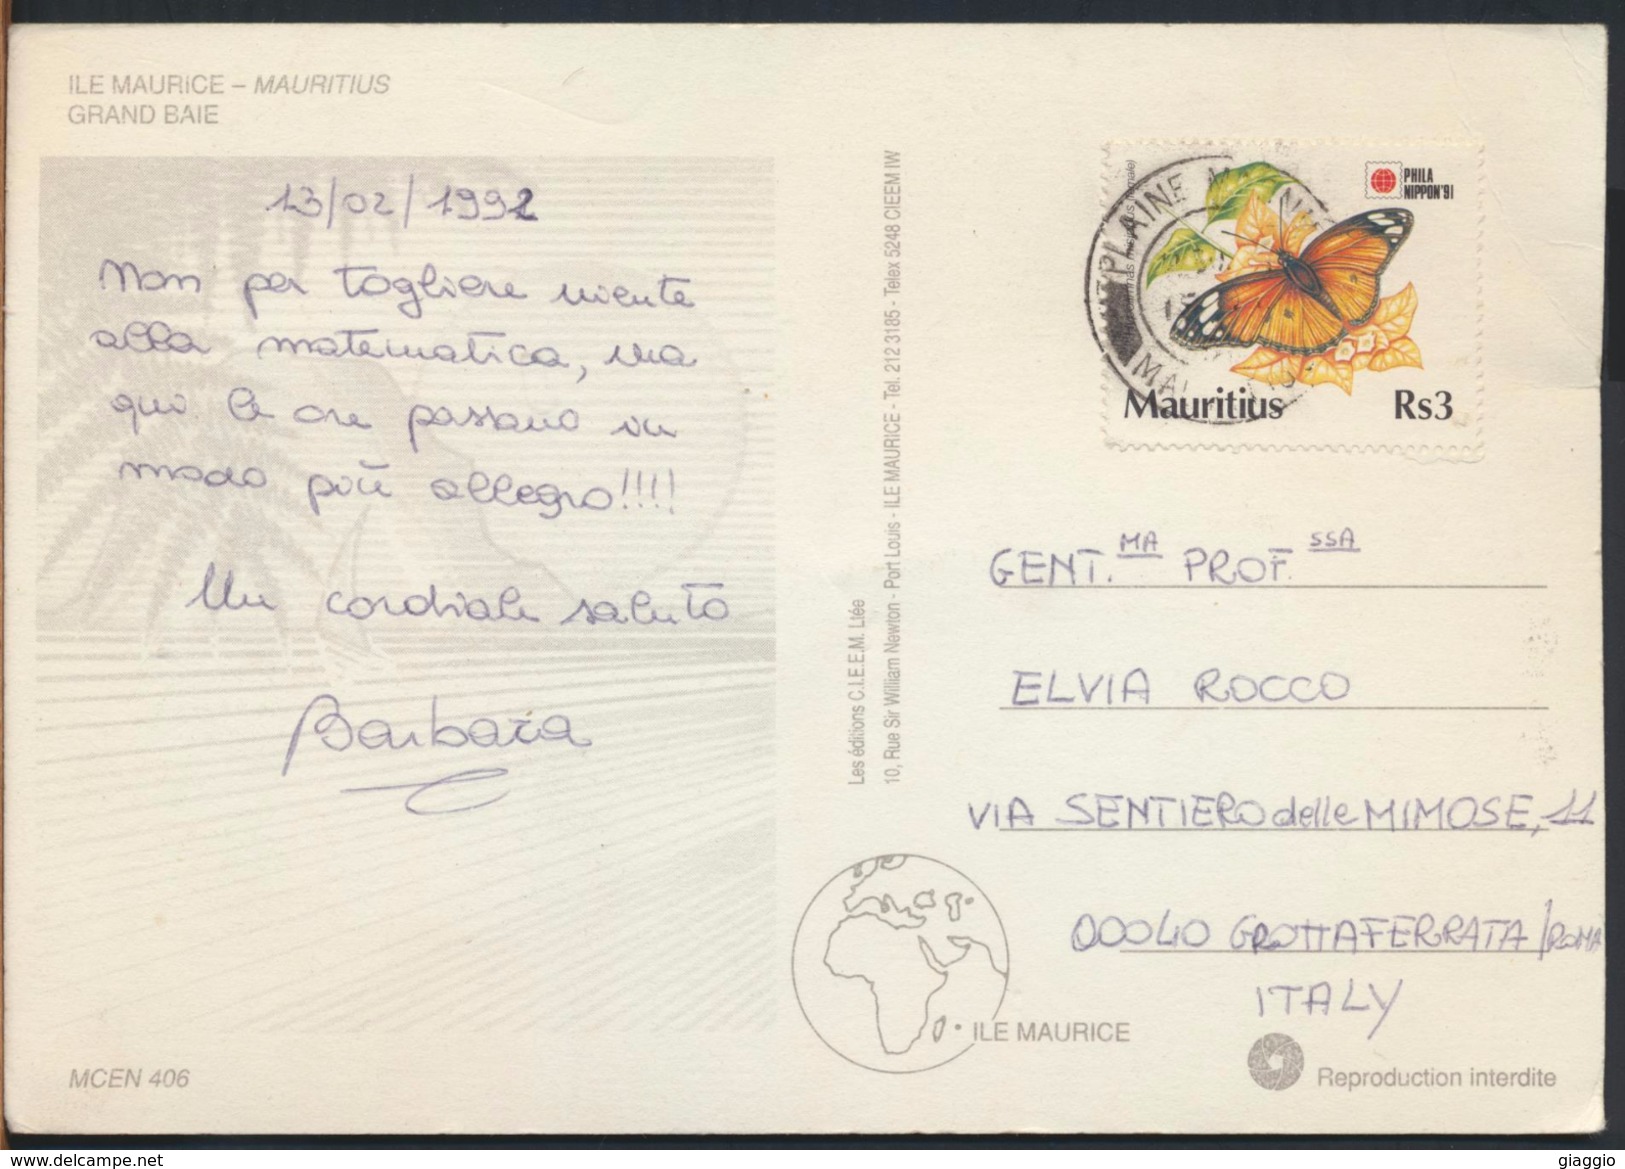 ILE MAURICE – MAURITIUS
GRAND BAIE
13/02/1992
Non per togliere niente
alla matematica, ma
qui le ore passano in
modo più allegro!!!!
Un cordiale saluto
Barbara
MCEN 406
Les éditions C.I.E.E.M. Ltée
10, Rue Sir William Newton - Port Louis - ILE MAURICE - Tel. 212 3185 - Telex 5248 CIEEM IW
PHILA
NIPPON'91
PLAINE
Mauritius Rs3
GENT.MA PROF.SSA
ELVIA ROCCO
VIA SENTIERO delle MIMOSE, 11
00040 GROTTAFERRATA/ROMA
ITALY
ILE MAURICE
Reproduction interdite
giaggio